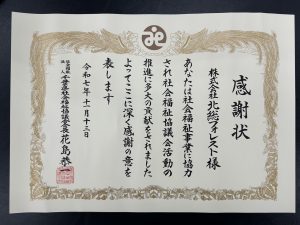 感謝状
株式会社 北総フォレスト 様
あなたは社会福祉事業に協力
され社会福祉協議会活動の
推進に多大の貢献をされました
よってここに深く感謝の意を
表します
令和七年十一月十三日
社会福祉協議会長 花島恭一